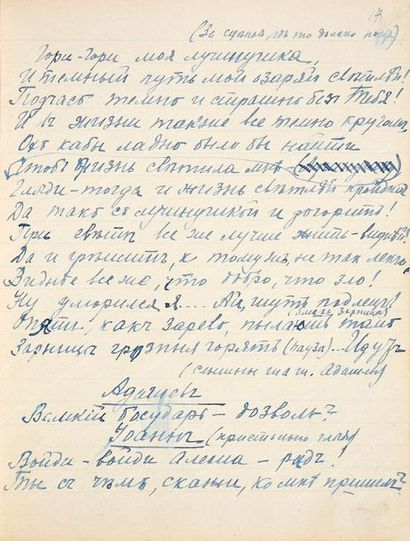 17
(За сценой, где то далеко поют)
Гори-гори моя лучинушка,
И темный путь мой озаряй светлѣй!
Подчасъ темно и страшно безъ тебя!
И въ жизни также все темно кругомъ,
Охъ кабы ладно было бы найти
Чтобъ жизнь свѣтила мнѣ
Гляди-тогда и жизнь свѣтлѣй
Да такъ съ лучинушкой и догоритъ!
При свѣтѣ все же лучше жить-виднѣй!
Да и грѣшить къ тому жъ не такъ легко,
Виднѣе все же, что добро, что зло!
Ну уморился я.... Ай, шутъ
Опять, какъ зарево, пылаютъ тамъ
Зарницы грозныя горятъ (пауза)... Идутъ
(слышны шаги Адашева)
Адашевъ
Великій Государь - дозволь?
Іоаннъ (пристально глядя)
Войди - войди Алеша - радъ!
Ты съ чѣмъ, скажи, ко мнѣ пришелъ?